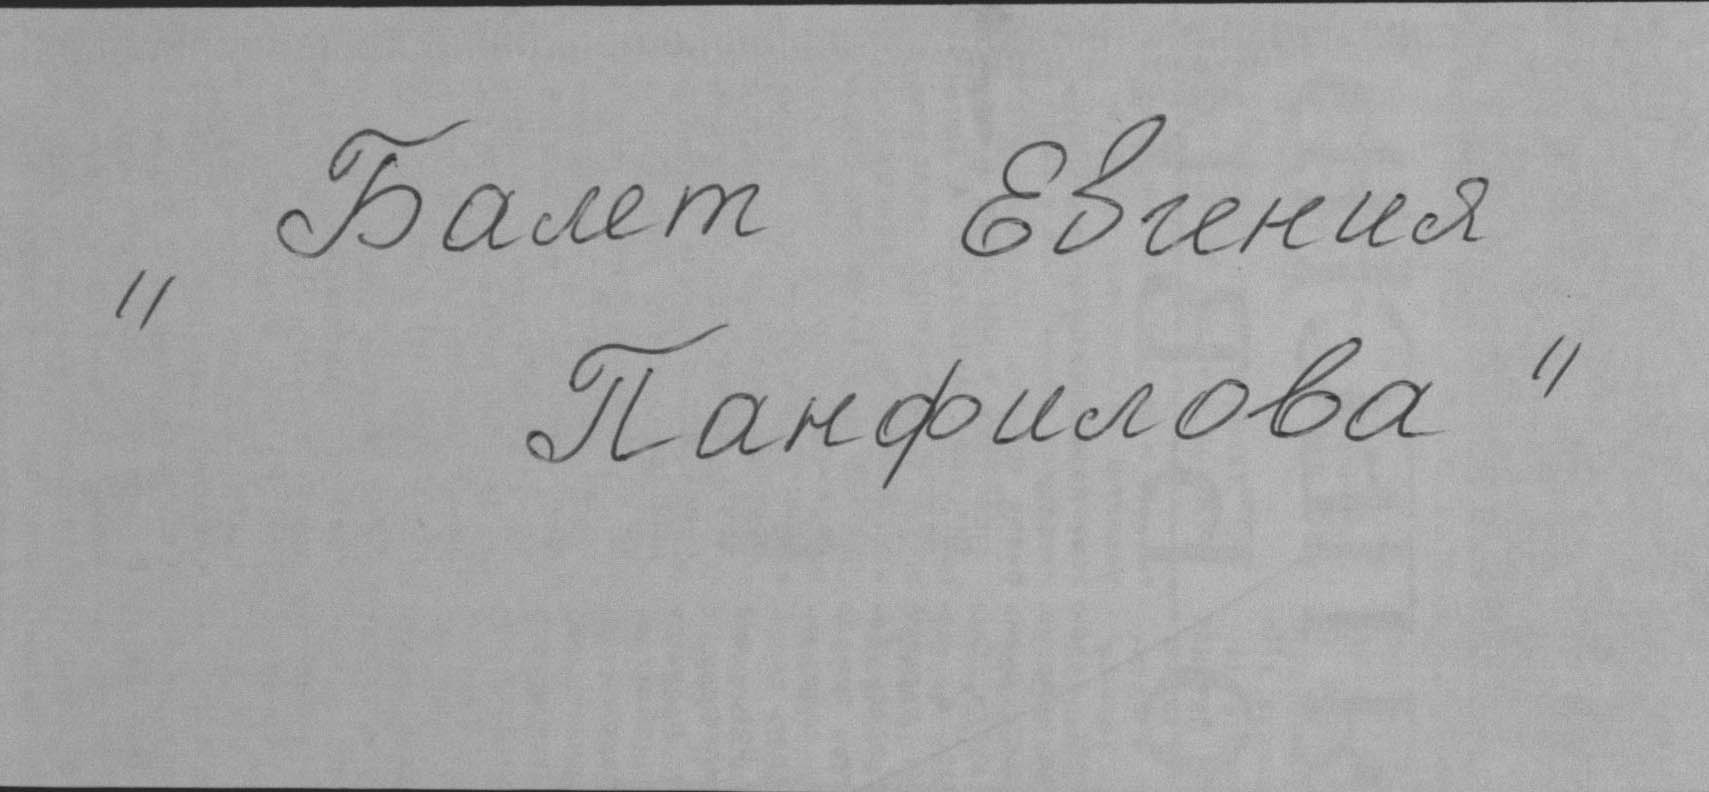 Балет Евгения
"Панфилова"